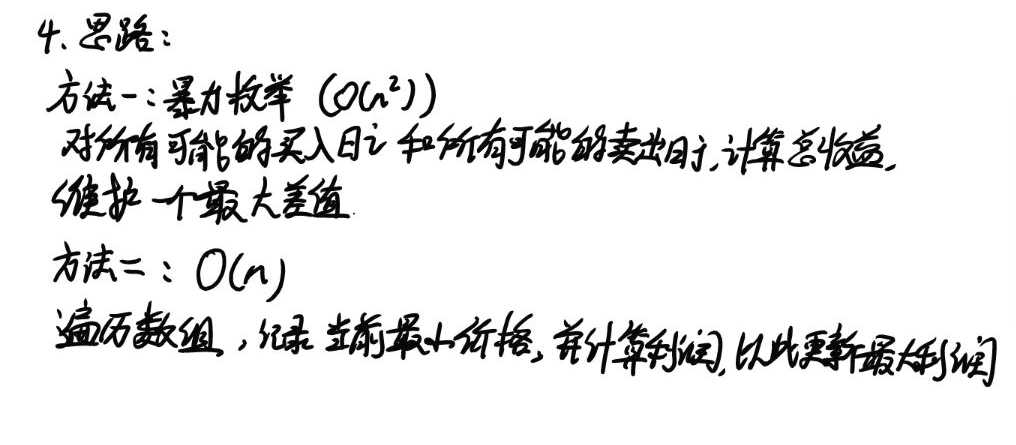 4. 思路:
方法一:暴力枚举 (O(n²))
对所有可能的买入日i 和所有可能的卖出日j,计算总收益,
维护一个最大差值.
方法二: O(n)
遍历数组,记录当前最小价格,并计算利润,以此更新最大利润